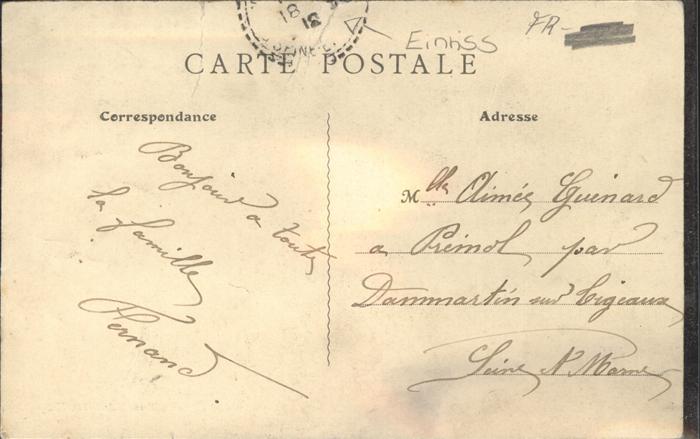 18
18
FR-
Einriss
CARTE POSTALE
Correspondance
Adresse
Bonjour a toute
la famille
Fernand
Mlle Aimée Guénard
a Prémol par
Dammartin sur Tigeaux
Seine N Marne